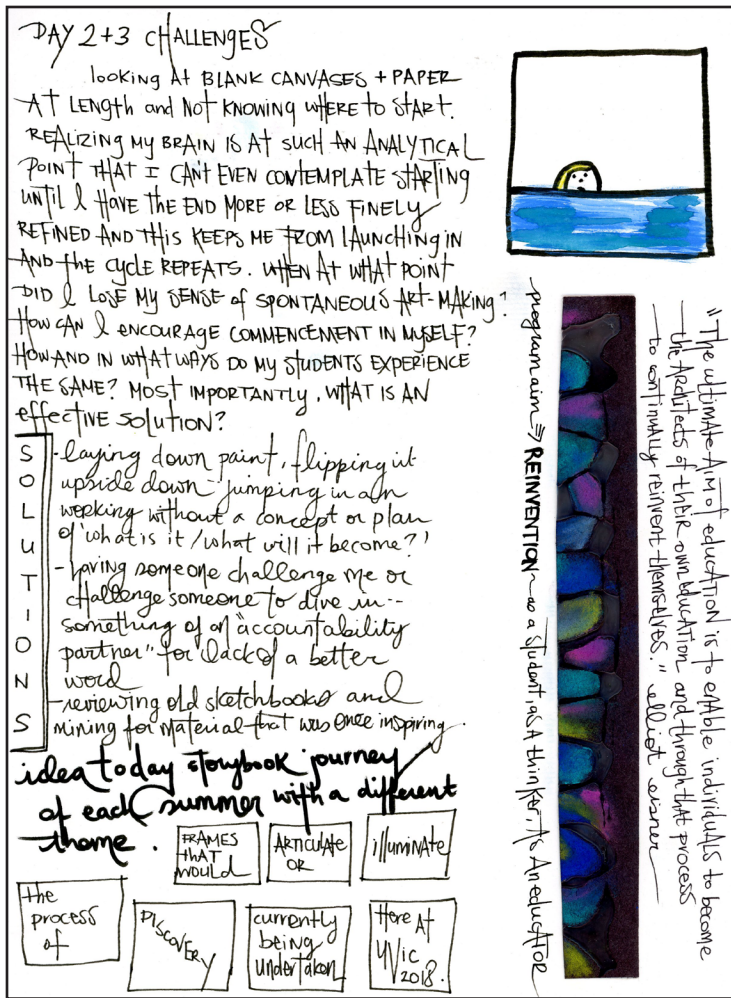 DAY 2+3 CHALLENGES
looking At BLANK CANVASES + PAPER
AT LENGTH and NOT KNOWING WHERE TO START.
REALIZING MY BRAIN IS AT SUCH AN ANALYTICAL
POINT THAT I CAN'T EVEN CONTEMPLATE STARTING
UNTIL I HAVE THE END MORE OR LESS FINELY
REFINED AND THIS KEEPS ME FROM LAUNCHING IN
AND the cycle REPEATS. WHEN AT WHAT POINT
DID I LOSE MY SENSE of SPONTANEOUS ART-MAKING?
HOW CAN I ENCOURAGE COMMENCEMENT IN MYSELF?
HOW AND IN WHAT WAYS DO MY STUDENTS EXPERIENCE
THE SAME? MOST IMPORTANTLY, WHAT IS AN
effective SOLUTION?
SOLUTIONS
-laying down paint, flipping it
upside down - jumping in
working without a concept or plan
of 'what is it / what will it become?'
- having someone challenge me or
challenge someone to dive in--
something of an "accountability
partner" for lack of a better
word
-reviewing old sketchbooks and
mining for material that was once inspiring.
idea today storybook journey
of each summer with a different
theme.
FRAMES
that
WOULD
ARTICULATE
OR
illuminate
the
process
of
DISCOVERY
currently
being
undertaken
Here At
UVic
2018.
program aim ⇒ REINVENTION ~ as a student, as A thinker, As An educator
"The ultimate Aim of education is to enable individuals to become
the Architects of their own education and through that process
to continually reinvent themselves." elliot eisner